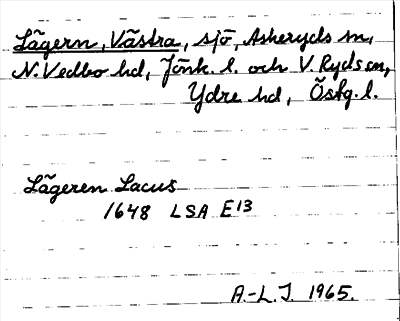 Lägern, Västra, sjö, Askeryds sn,
N. Vedbo hd, Jönk. l. och V. Ryds sn,
Ydre hd, Östg. l.
Lägeren Lacus
1648 LSA E13
A.-L.J. 1965.